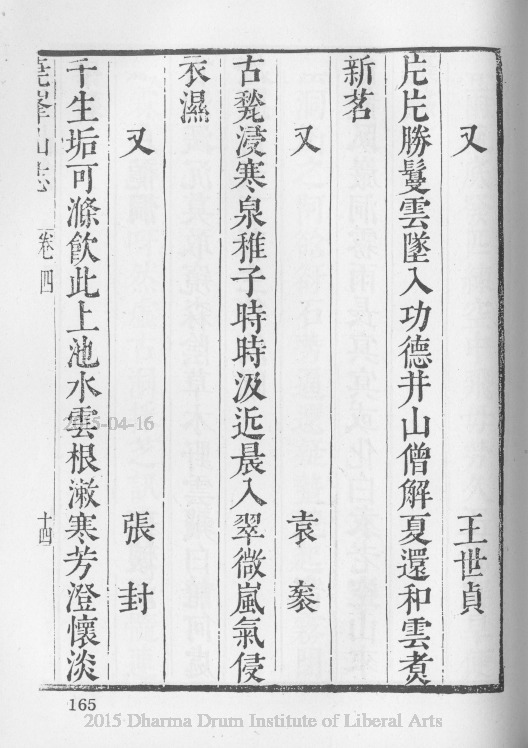 又 王世貞
片片勝鬘雲墜入功德井山僧解夏還和雲煮
新茗
又 袁褧
古甃浸寒泉稚子時時汲近晨入翠微嵐氣侵
衣濕
又 張封
千生垢可滌飲此上池水雲根漱寒芳澄懷淡
堯峯山志 卷四 十四
2015-04-16
165
2015 Dharma Drum Institute of Liberal Arts